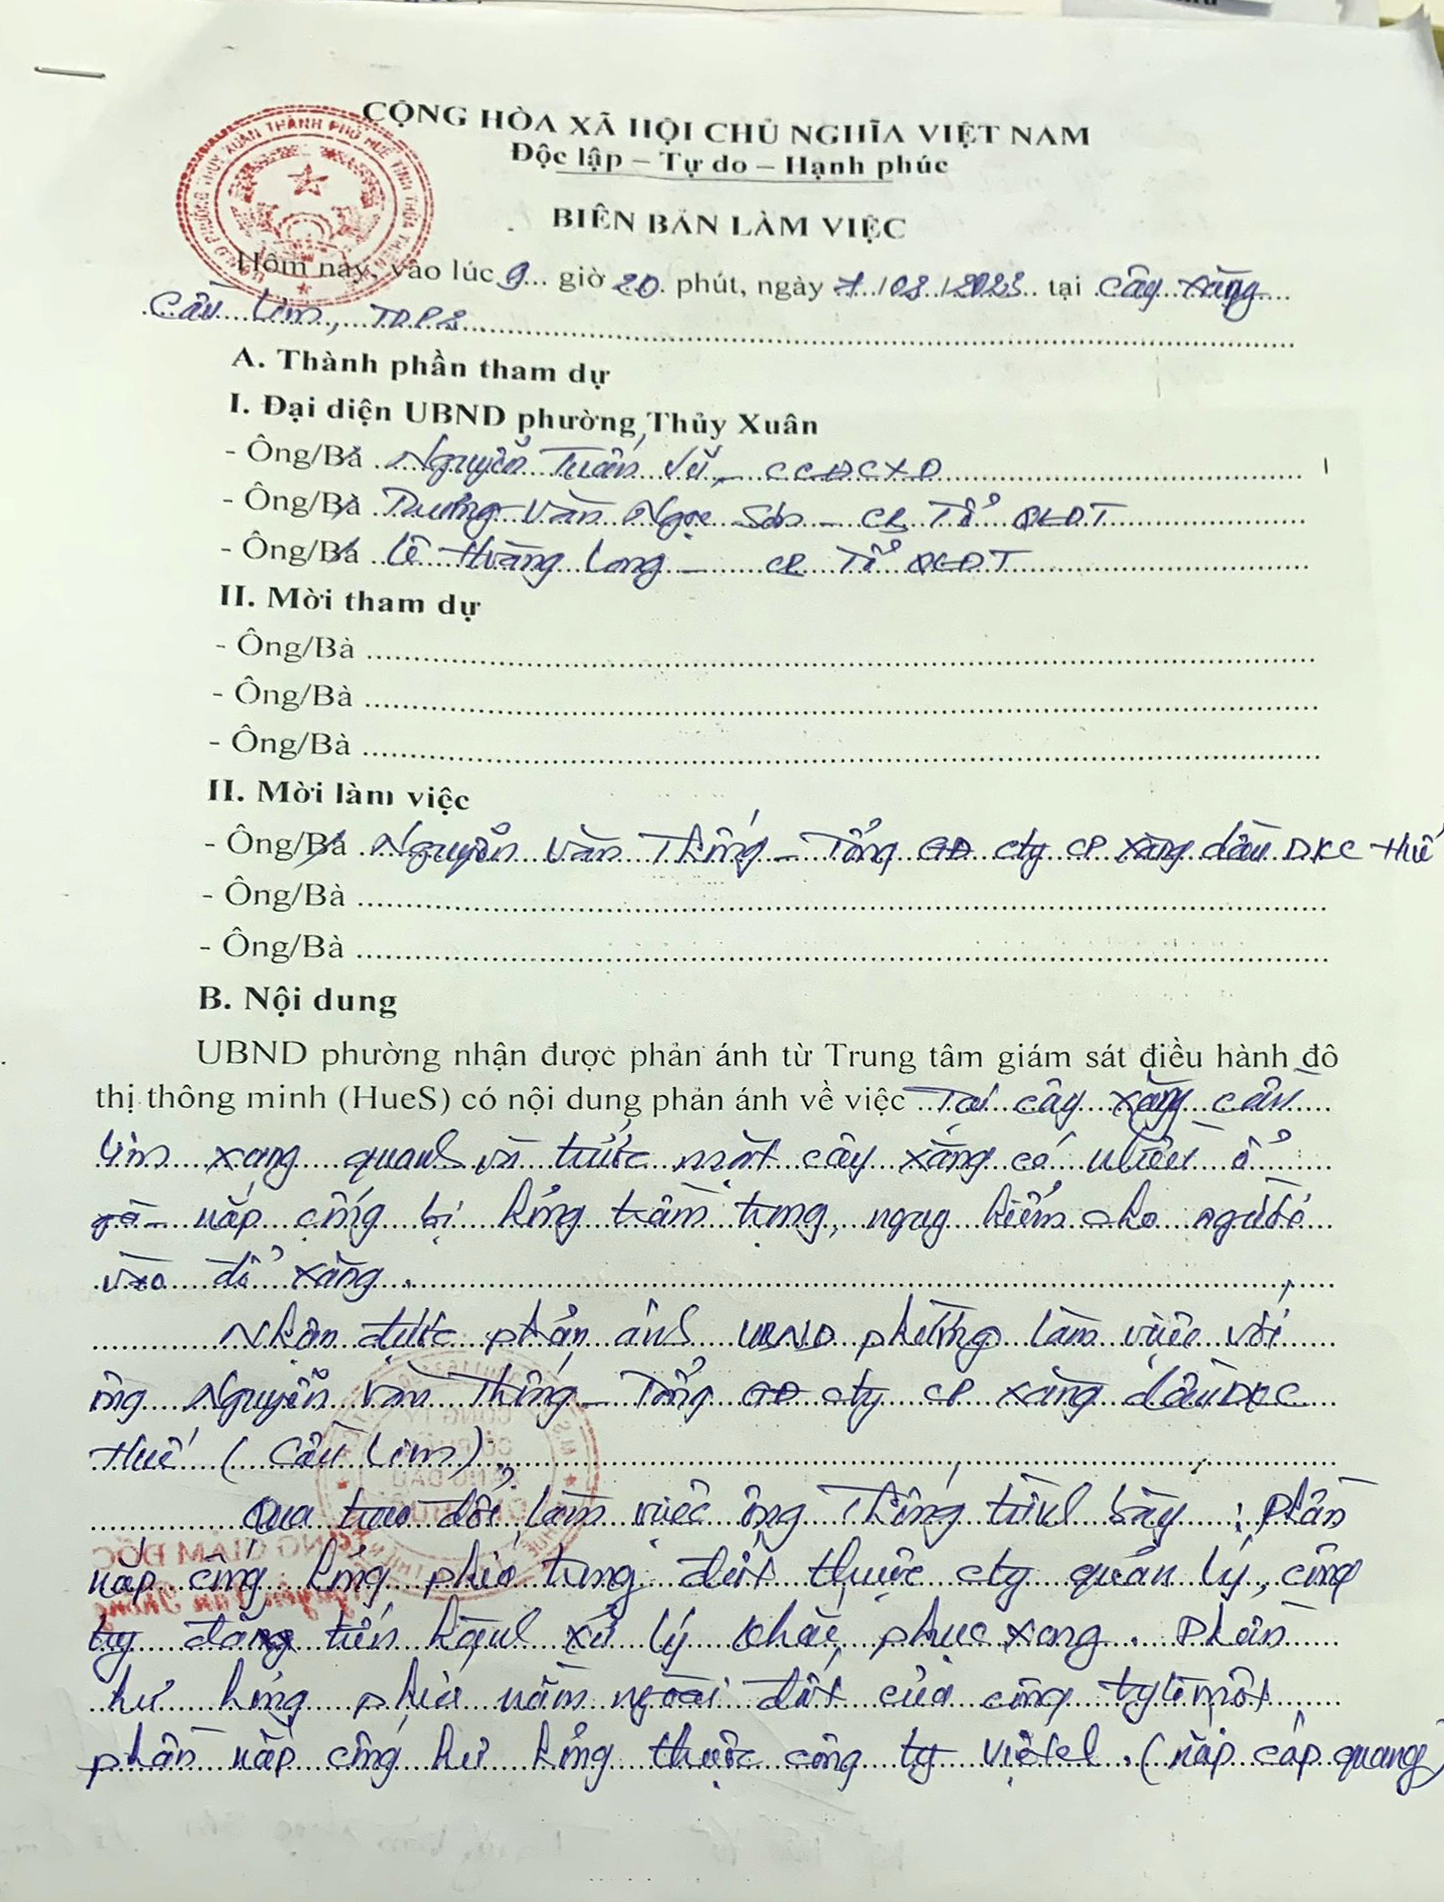 CỘNG HÒA XÃ HỘI CHỦ NGHĨA VIỆT NAM
Độc lập – Tự do – Hạnh phúc
BIÊN BẢN LÀM VIỆC
Hôm nay, vào lúc 9... giờ 20. phút, ngày /08/2023.. tại cây xăng
cầu Lim, TDP2
A. Thành phần tham dự
I. Đại diện UBND phường Thủy Xuân
- Ông/Bà Nguyễn Tuấn Vũ - CCĐCXD
- Ông/Bà Dương Văn Ngọc Sơn - CB Tổ QLĐT
- Ông/Bà Lê Hoàng Long - CB Tổ QLĐT
II. Mời tham dự
- Ông/Bà
- Ông/Bà
- Ông/Bà
II. Mời làm việc
- Ông/Bà Nguyễn Văn Thống - Tổng GĐ cty CP xăng dầu DKC Huế
- Ông/Bà
- Ông/Bà
B. Nội dung
UBND phường nhận được phản ánh từ Trung tâm giám sát điều hành đô
thị thông minh (HueS) có nội dung phản ánh về việc Tại cây xăng cầu
Lim xung quanh và trước mặt cây xăng có nhiều ổ
gà - nắp cống bị hỏng trầm trọng, nguy hiểm cho người
vào đổ xăng.
Nhận được phản ánh UBND phường làm việc với
ông Nguyễn Văn Thống - Tổng GĐ cty CP xăng dầu DKC
Huế (Cầu Lim).
Qua trao đổi, làm việc ông Thống trình bày: Phần
nắp cống hỏng phía trong đất thuộc cty quản lý, công
ty đang tiến hành xử lý khắc phục xong. Phần
hư hỏng phía nằm ngoài đất của công ty là một
phần nắp cống hư hỏng thuộc công ty Viettel. (nắp cáp quang)